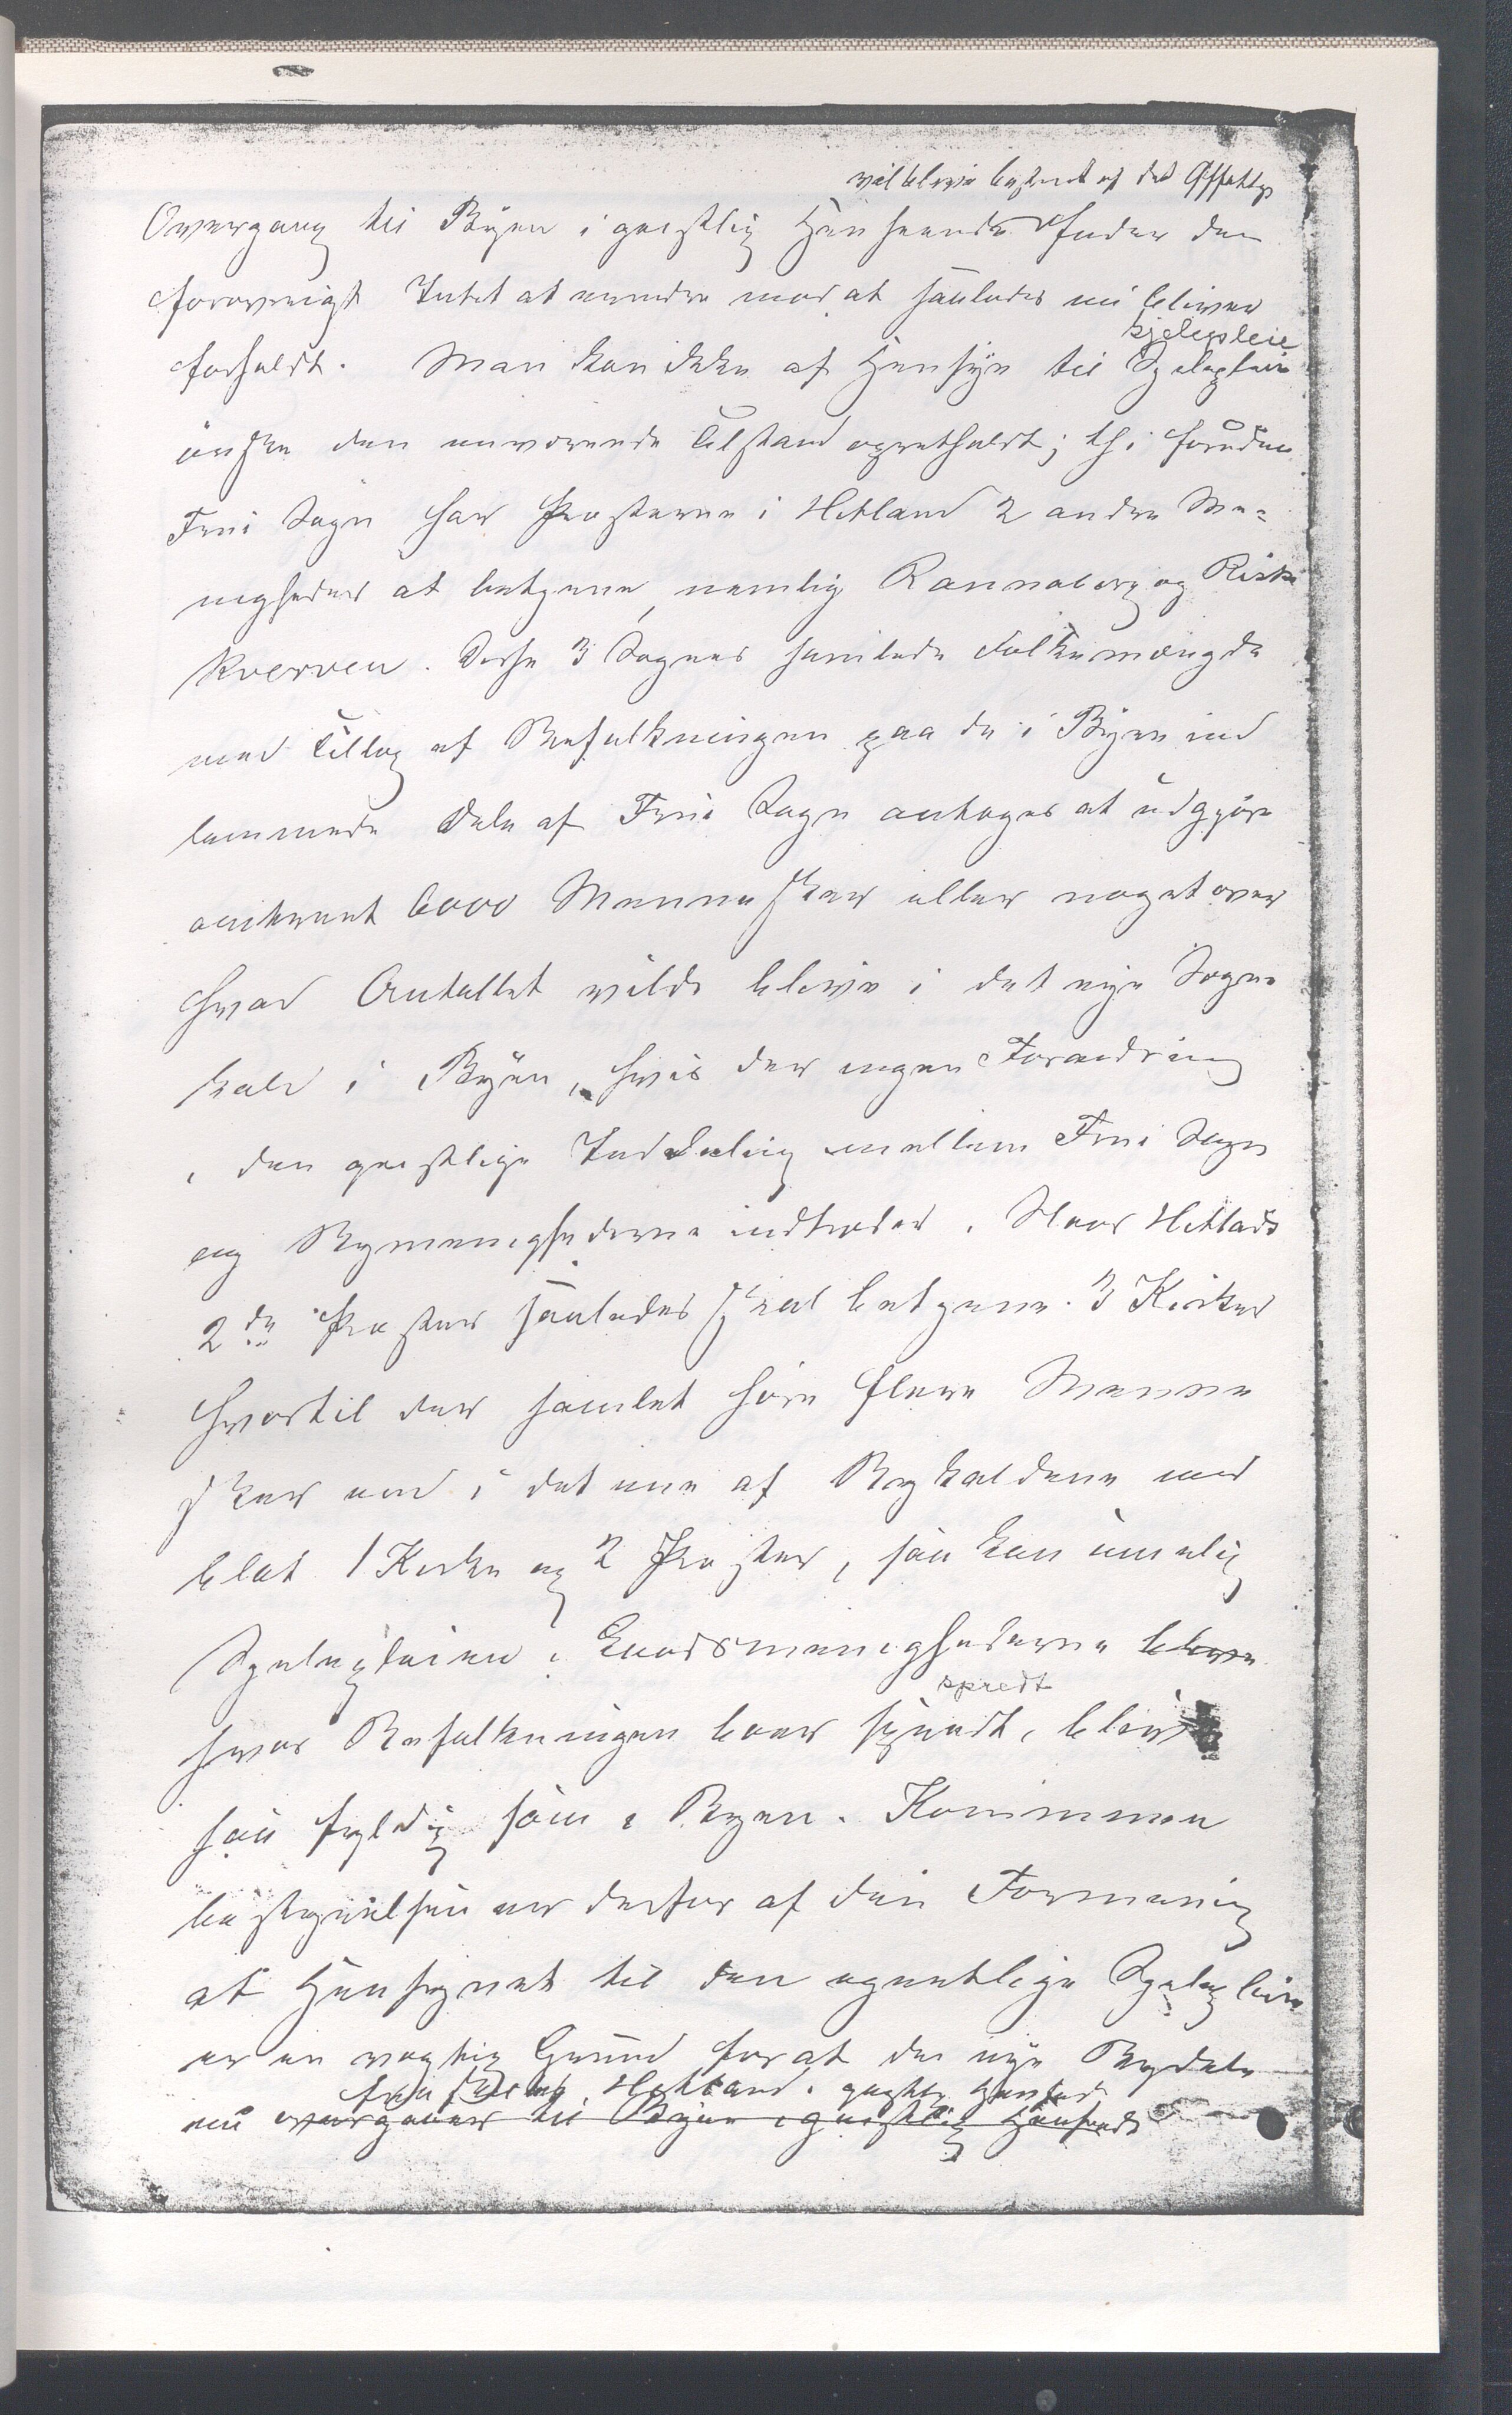 vil blive bestemt af det Offentlige
Overgang til Byen i geistlig Henseende finder den
forøvrigt Intet at erindre mod at saaledes nu bliver
sjelepleie
forholdt. Man kan ikke af Hensyn til Sjelepleie
ønske den nuværende Tilstand opretholdt; thi foruden
Frue Sogn har Præsterne i Hetland 2 andre Me-
nigheder at betjene, nemlig Rannaberg og Riska
Kverven. Disse 3 Sognes samlede Folkemængde
med Tillæg af Befolkningen paa de i Byen ind
lemmede Dele af Frue Sogn antages at udgjøre
omtrent 6000 Mennesker eller noget over
hvad Antallet vilde blive i det nye Sogne
kald i Byen, hvis der ingen Forandring
i den geistlige Inddeling mellem Frue Sogn
og Bymenighederne indtræder. Naar Hetlads
2de Præster saaledes skal betjene 3 Kirker
hvortil der samlet høre flere Menne
sker end i det ene af Bykaldene med
blot 1 Kirke og 2 Præster, saa kan umulig
Sjelepleien i Landsmenighederne blive
spredt
hvor Befolkningen boer spredt, blive
saa fyldig som i Byen. Kommune
bestyrelsen er derfor af den Formening
at Hensynet til den egentlige Sjelepleie
er en vægtig Grund for at de nye Bydele
fra Hetland i geistlig Henseende
nu overgaaer til Byen i geistlig Henseende